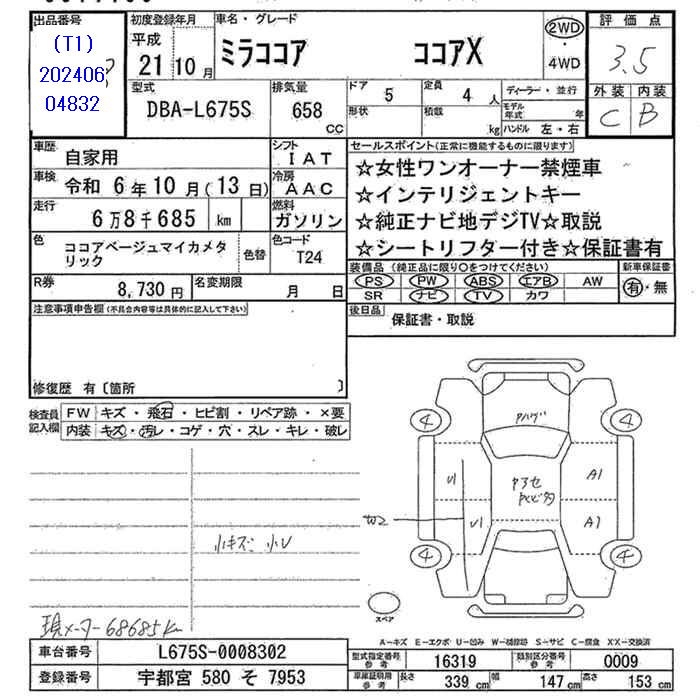 出品番号
(T1)
202406
04832
初度登録年月
平成
21年10月
車名・グレード
ミラココア ココアX
2WD
・
4WD
評価点
3.5
外装 内装
C B
型式
DBA-L675S
排気量
658
CC
ドア 5
形状
定員 4 人
積数 kg
ディーラー・並行
モデル年式 年
ハンドル 左・右
車歴 自家用
シフト IAT
車検 令和 6年10月(13日)
冷房 AAC
走行 6万8千685 km
燃料 ガソリン
色 ココアベージュマイカメタリック
色替
色コード T24
R券 8,730円
名変期限 月 日
セールスポイント(正常に機能するものに限ります)
☆女性ワンオーナー禁煙車
☆インテリジェントキー
☆純正ナビ地デジTV☆取説
☆シートリフター付き☆保証書有
装備品(純正品に限り○をつけてください)
PS PW ABS エアB AW
SR ナビ TV カワ
新車保証書
有・無
後日品 保証書・取説
注意事項申告欄(不具合内容等は具体的に記入して下さい)
修復歴 有〔箇所 〕
検査員記入欄
FW キズ・飛石・ヒビ割・リペア跡・×要
内装 キズ・汚レ・コゲ・穴・スレ・キレ・破レ
小キズ 小U
現メーター68685km
4 4
U1 A1
W2 U1 A1
4 4
スペア
A-キズ E-エクボ U-凹み W-補修跡 S-サビ C-腐食 XX-交換済
車台番号 L675S-0008302
登録番号 宇都宮 580 そ 7953
型式指定番号 参考 16319
類別区分番号 参考 0009
車庫証明用 参考 長さ 339 cm 幅 147 cm 高さ 153 cm